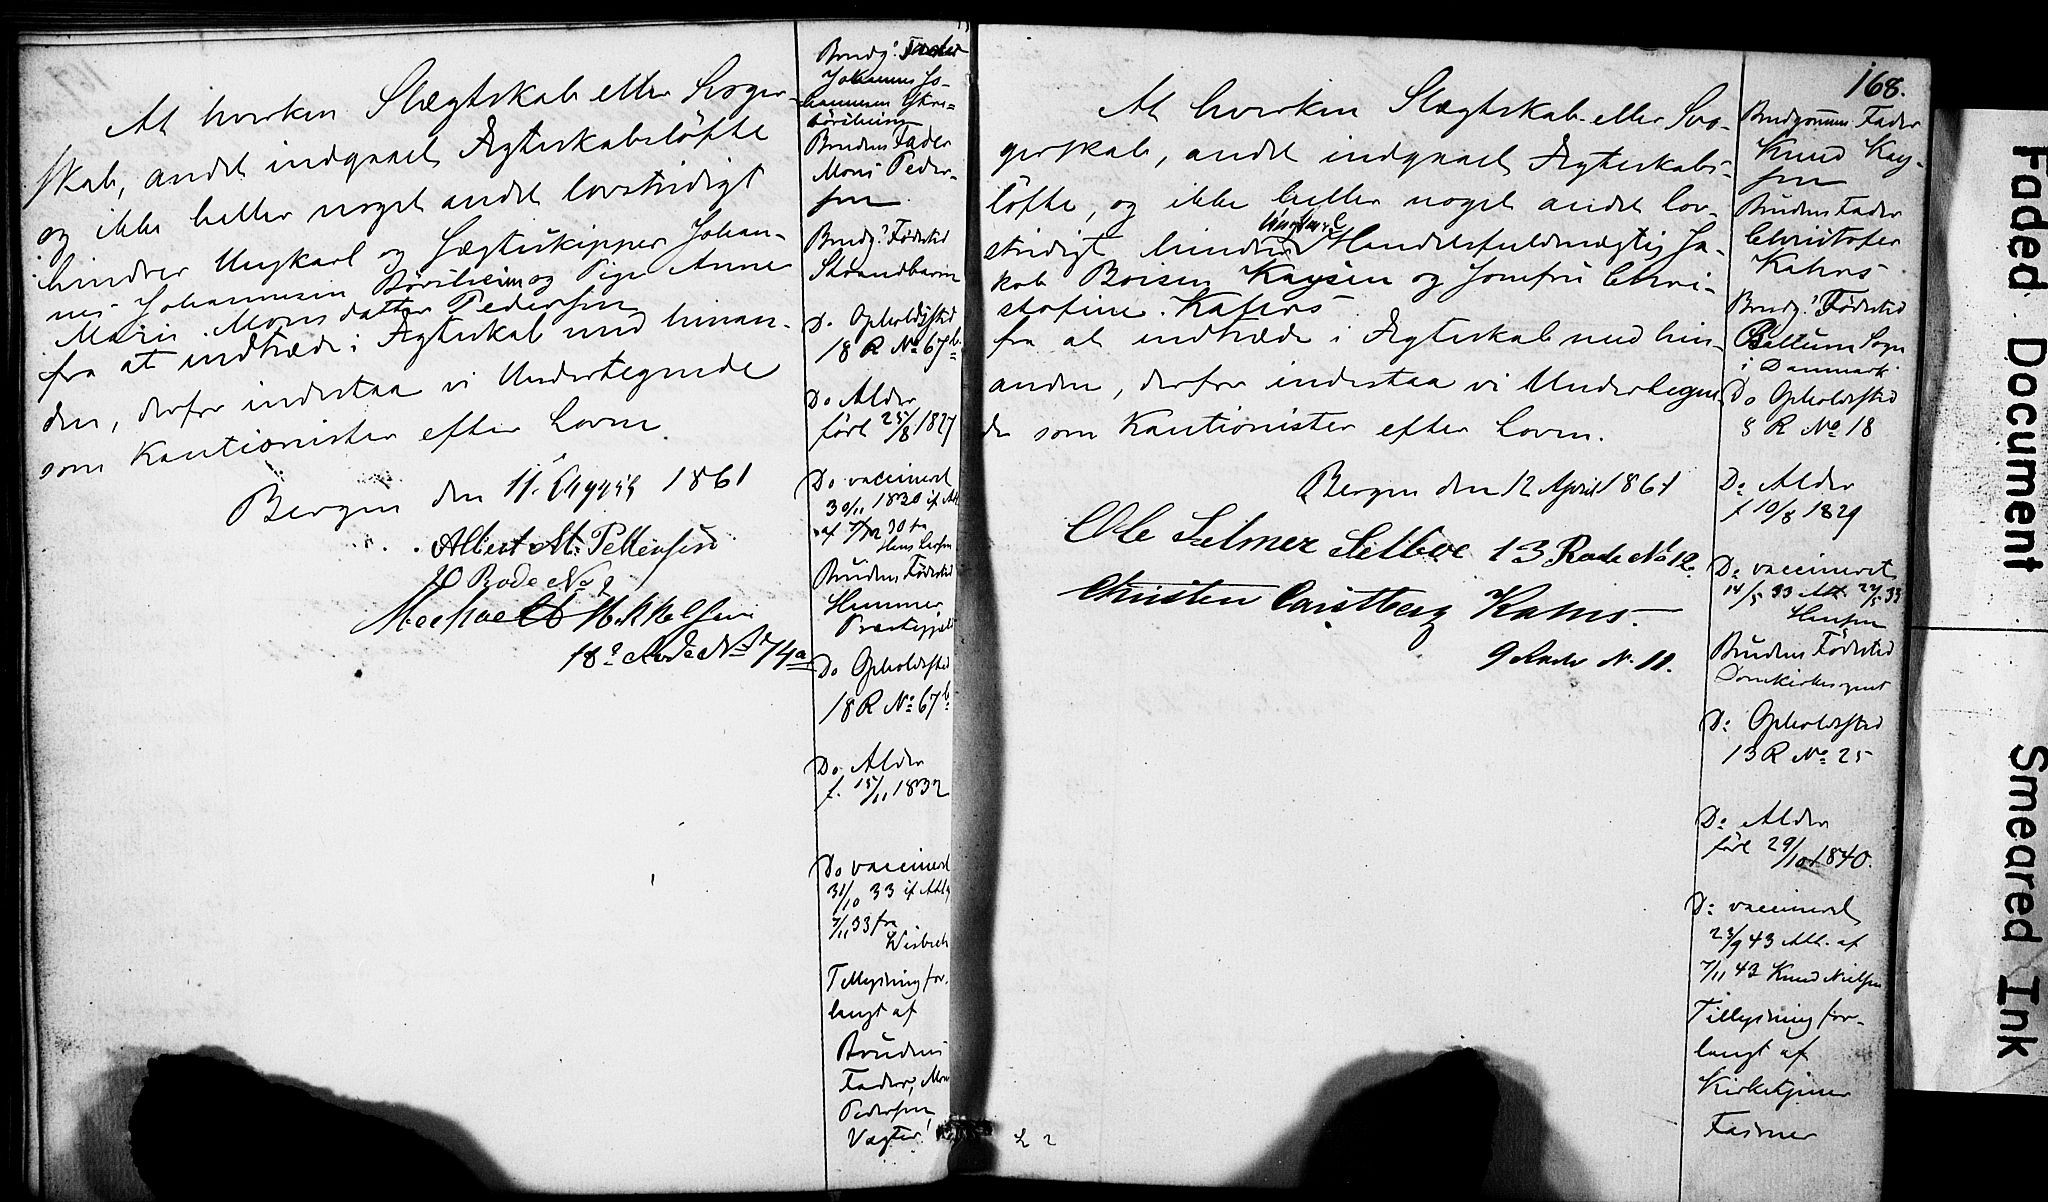 At hverken Slægtskab eller Svoger-
skab, andet indgaaet Ægteskabsløfte
og ikke heller noget andet lovstridigt
hindrer Ungkarl og Jægteskipper Johan-
nes Johannesen Børsheim og Pige Anne
Marie Monsdatter Pedersen
fra at indtræde i Ægteskab med hinan-
den, derfor indestaa vi Undertegnede
som Kautionister efter Loven.
Bergen den 11. 1861
Albert M. Pettersen
20 Rode No 2
Mikkelsen
18 Rode No 74a
Brudg: Fader
Johannes Jo-
hannesen
Brudens Fader
Mons Peder-
sen
Brudg: Fødested
Strandbarm
Do Opholdssted
18 R No 67b
Do Alder
født 25/8 1827
Do vaccineret
30/11 1830 if. Att
af 7/12 30 fra
Hans Larsen
Brudens Fødested
Hammer
Præstegjæld
Do Opholdssted
18 R No 67b
Do Alder
f. 15/11 1832
Do vaccineret
31/10 33 if Att.
7/11 33 fra
Wisbech
Tillysning for-
langt af
Brudens
Fader, Mons
Pedersen,
Vægter
168.
At hverken Slægtskab eller Svo-
gerskab, andet indgaaet Ægteskabs-
løfte, og ikke heller noget andet lov-
stridigt hindrer Ungkarl Handelsfuldmægtig Ja-
kob Boisen Kaysen og Jomfru Chri-
stofine Kahrs
fra at indtræde i Ægteskab med hin-
anden, derfor indestaa vi Undertegne-
de som Kautionister efter Loven.
Bergen den 12 April 1861
Ole Selmer Selboe 13 Rode No 12.
Christen Carstberg Kahrs.
9 Rode N. 11.
Brudgommens Fader
Knud Kay-
sen
Brudens Fader
Christofer
Kahrs
Brudg: Fødested
Ballum Sogn
i Danmark
Do Opholdssted
8 R No 18
Do Alder
f 10/8 1829
Do vaccineret
14/5 33 Att 22/5 33
Hansen
Brudens Fødested
Domkirkesognet
Do Opholdssted
13 R No 25
Do Alder
født 29/10 1840.
Do vaccineret
23/9 43 Att. af
7/11 43 Knud Nielsen
Tillysning for-
langt af
Kirketjener
Fasmer
Faded Document
Smeared Ink